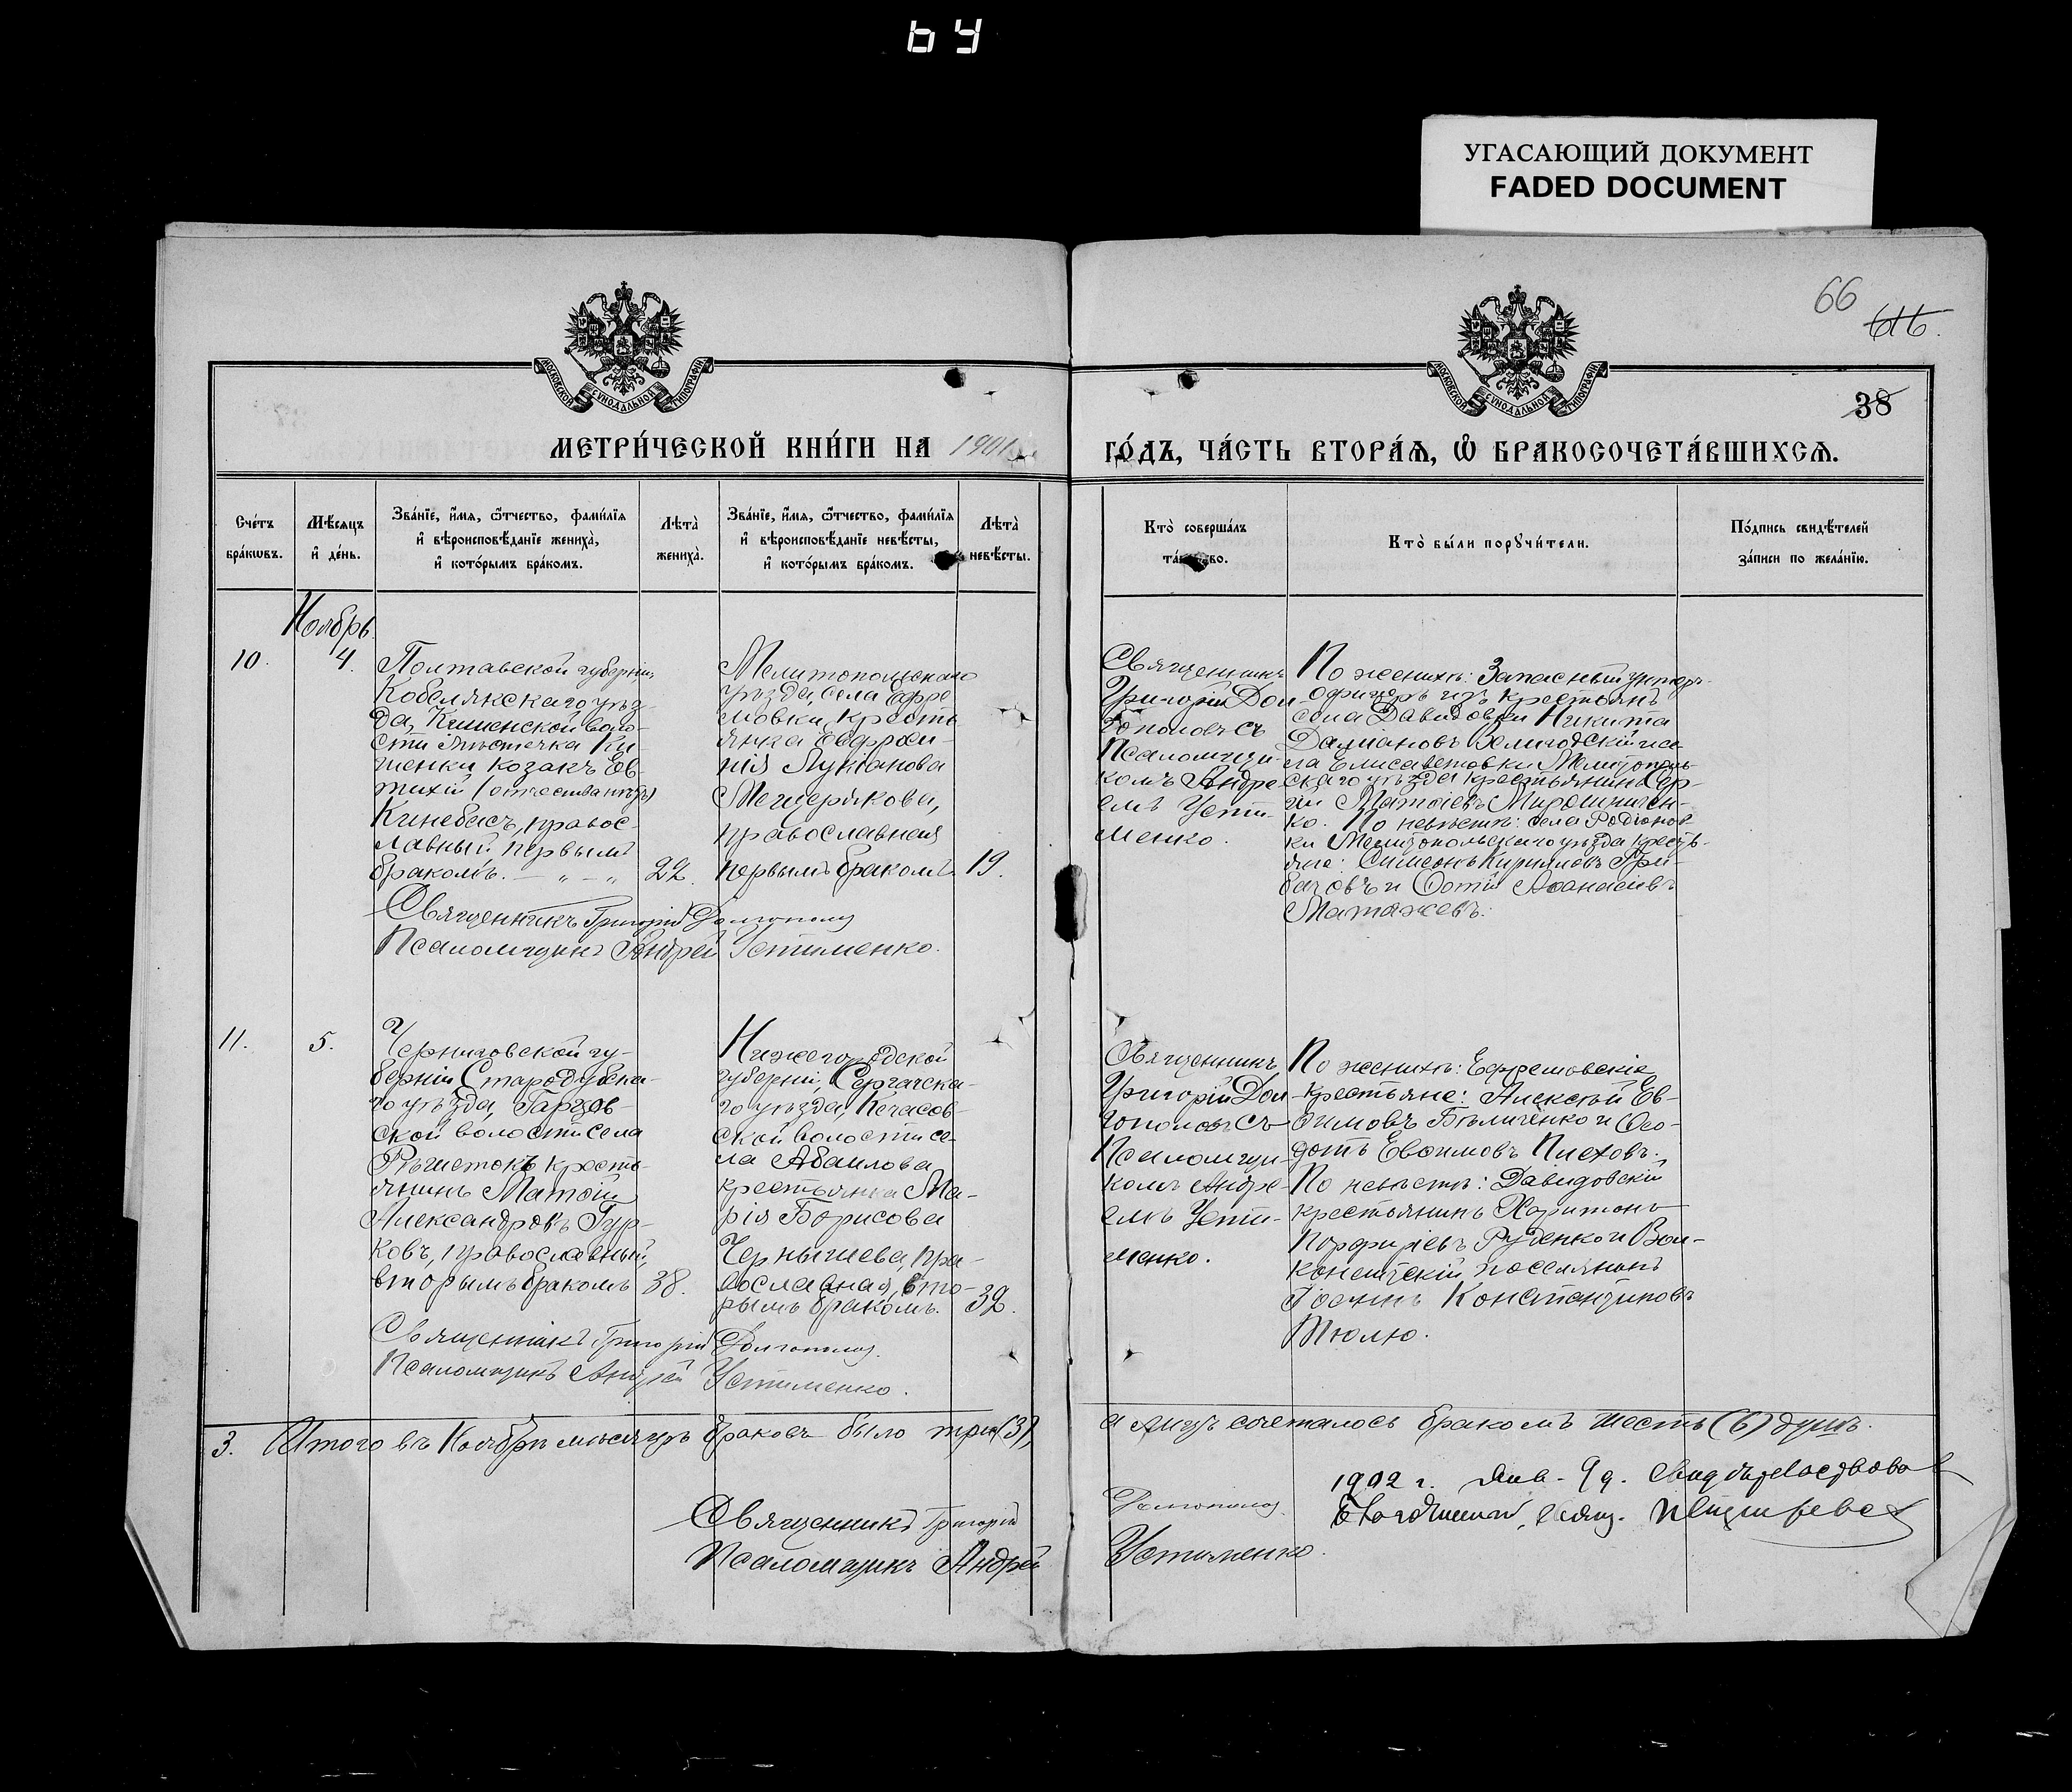 64
УГАСАЮЩИЙ ДОКУМЕНТ
FADED DOCUMENT
66
616.
38
МОСКОВСКОЙ СѴНОДАЛЬНОЙ ТИПОГРАФІИ
МОСКОВСКОЙ СѴНОДАЛЬНОЙ ТИПОГРАФІИ
МЕТРИ́ЧЕСКОЙ КНИ́ГИ НА 1901
ГО́ДЪ, ЧА́СТЬ ВТОРА́Ѧ, Ѽ БРАКОСОЧЕТА́ВШИХСѦ.
Сче́тъ бра́кѡвъ.
Мѣ́сяцъ и҆ де́нь.
Зва́нїе, и҆́мя, ѻ҆́тчество, фами́лїя
и҆ вѣроисповѣ́данїе жениха̀,
и҆ кото́рымъ бра́комъ.
Лѣта̀ жениха̀.
Зва́нїе, и҆́мя, ѻ҆́тчество, фами́лїя
и҆ вѣроисповѣ́данїе невѣ́сты,
и҆ кото́рымъ бра́комъ.
Лѣта̀ невѣ́сты.
Кто̀ соверша́лъ
та́инство.
Кто̀ бы́ли порꙋчи́тели.
По́дпись свидѣ́телей
за́писи по жела́нїю.
Ноябрь
10.
4.
Полтавской губерніи,
Кобелякскаго уѣз-
да, Кишенской воло-
сти мѣстечка Ки-
шенки козакъ Ев-
тихій
Кинебасъ, правос-
лавный первымъ
бракомъ. — „ — „
22.
Мелитопольскаго
уѣзда, села Ефре
мовки, кресть
янка Евфроси-
нія Лукіанова
Мещерякова,
православная
первымъ бракомъ.
19.
Священникъ
Григорій Дол
гополовъ съ
Псаломщи-
комъ Андре
емъ Усти-
менко.
По женихѣ: Запасный унтеръ-
офицеръ изъ крестьянъ
села Давидовки Никита
Даміановъ
ла Елисаветовки Мелитополь-
скаго уѣзда крестьянинъ Сер-
гій Матѳіевъ Мирошничен-
ко. По невѣстѣ: села Родіонов
ки Мелитопольскаго уѣзда кресть-
яне: Симеонъ Кирилловъ Гри-
и Аѳанасіевъ
Священникъ Григорій Долгополов
Псаломщикъ Андрей Устименко.
11.
5.
Черниговской гу-
берніи Стародубска-
го уѣзда, Гарцов-
ской волости села
Рѣшетокъ кресть-
янинъ Матѳій
Александровъ Гур-
ковъ, православный,
вторымъ бракомъ
38.
Нижегородской
губерніи, Сергачска-
го уѣзда, Кечасов-
ской волости се-
ла Абаилова
крестьянка Ма-
рія Борисова
Чернышева, пра-
вославная, вто-
рымъ бракомъ.
32.
Священникъ
Григорій Дол
гополовъ съ
Псаломщи-
комъ Андре-
емъ Усти-
менко.
По женихѣ: Ефремовскіе
крестьяне: Алексѣй Ев-
ѳимовъ Бѣличенко и Ѳео-
дотъ Евѳимовъ Плеховъ.
По невѣстѣ: Давидовскій
крестьянинъ Харитонъ
Порфиріевъ Руденко и Вол-
канештскій поселянинъ
Константиновъ
Тюлю.
Священникъ Григорій Долгополов
Псаломщикъ Андрей Устименко.
3. Итого въ Ноябрѣ мѣсяцѣ браковъ было три (3),
а лицъ сочеталось бракомъ шесть (6) душъ.
Священникъ Григорій Долгополов
Псаломщикъ Андрей Устименко.
1902 г. Янв. 9 д. Свидѣтельствовал